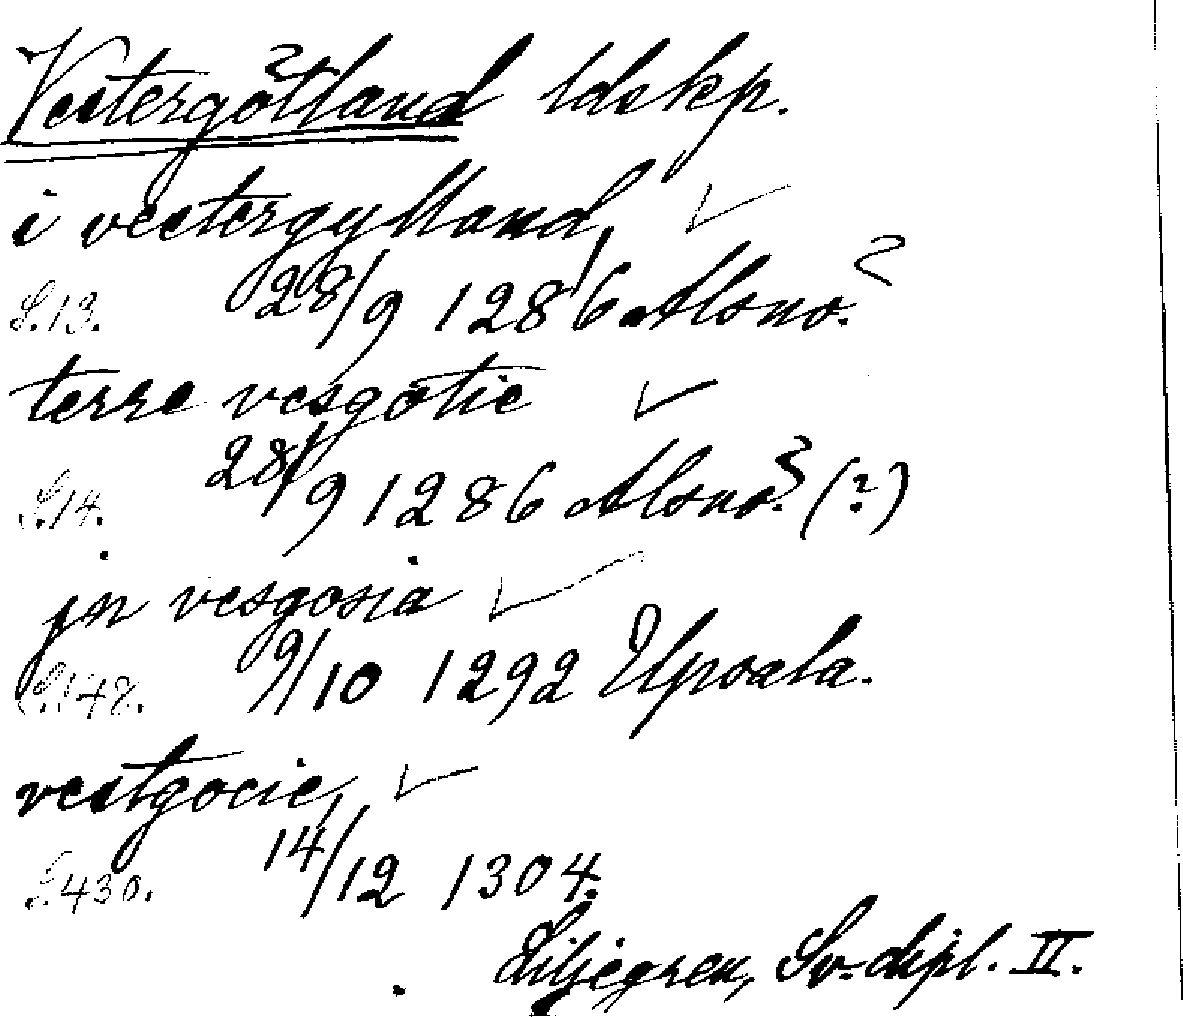 Vestergötland ldskp.
i vestergylland,
S. 13. 28/9 1286 Alsnö.
terre vesgotie
S. 14. 28/9 1286 Alsnö. (?)
jn vesgosia
S. 148. 9/10 1292 Upsala.
vestgocie,
S. 430. 14/12 1304.
Liljegren, Sv. dipl. II.